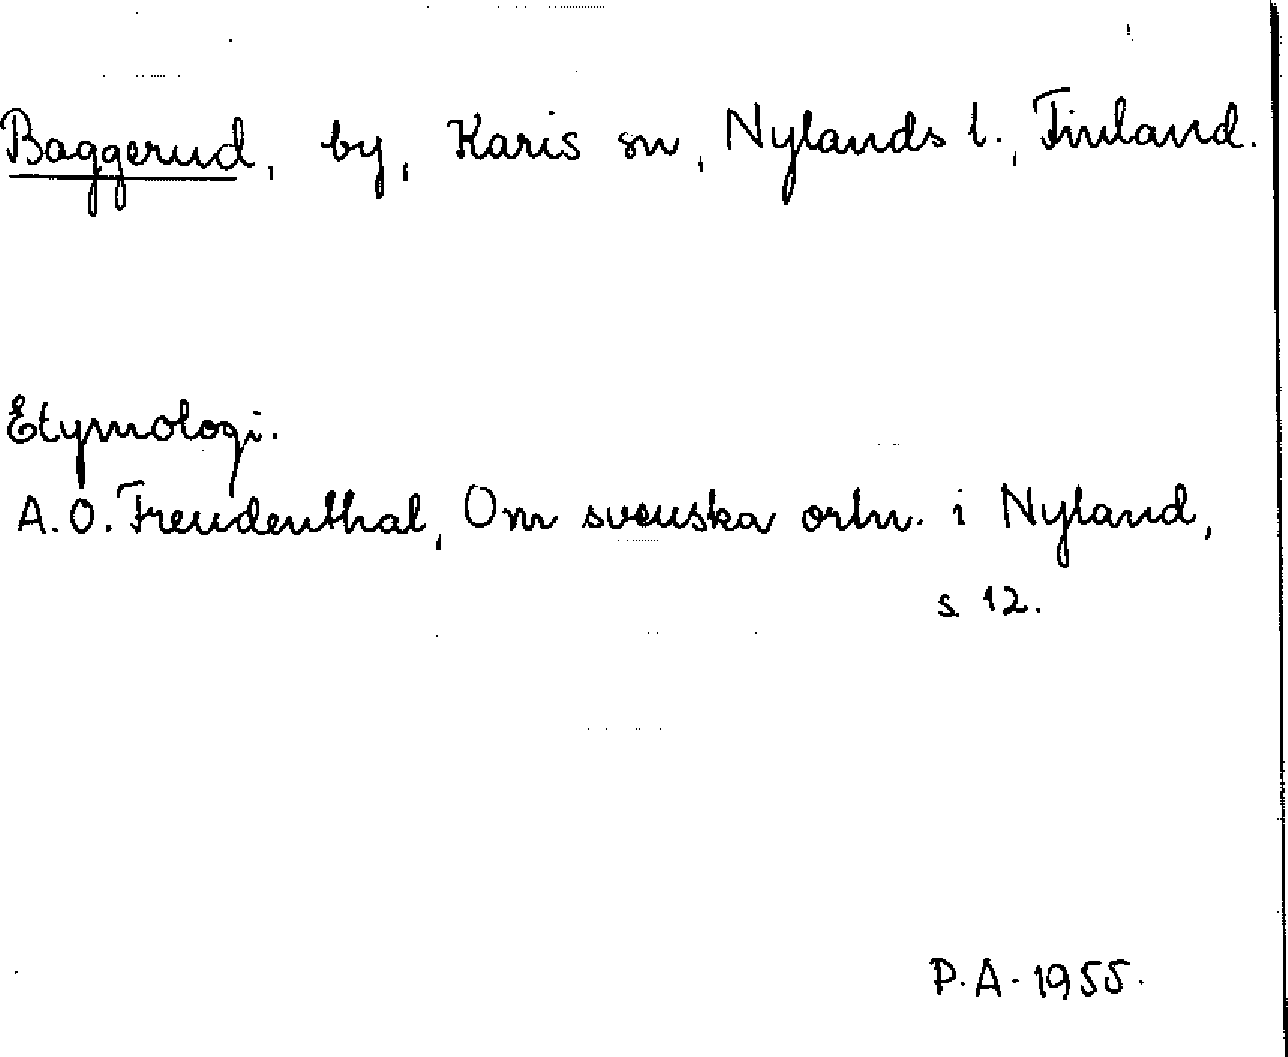 Baggerud, by, Karis sn, Nylands l., Finland.
Etymologi.
A.O. Freudenthal, Om svenska ortn. i Nyland,
s 12.
P.A. 1955.